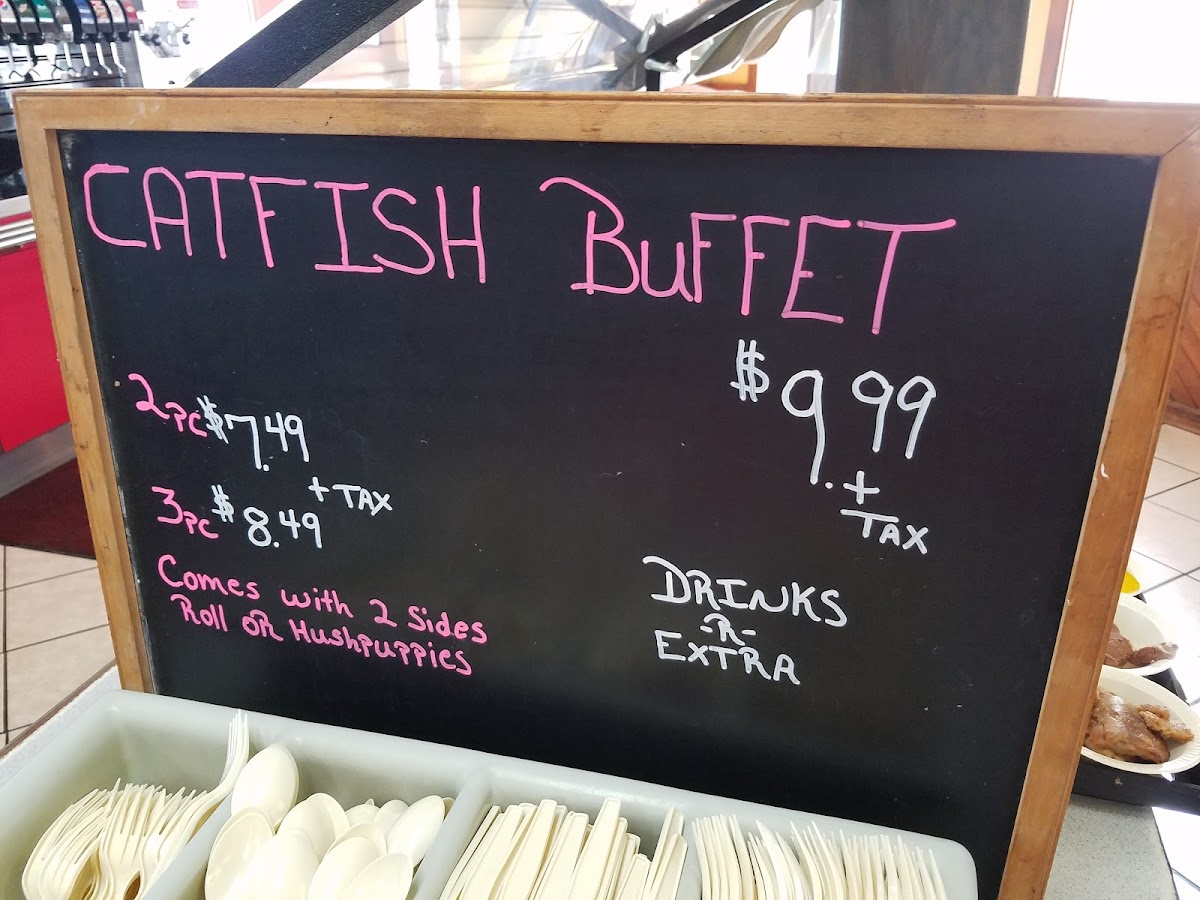 CATFISH BuFFET
$9.99
+
TAX
2PC $7.49
+ TAX
3PC $8.49
Comes with 2 Sides
Roll OR HushPuppies
DRINKS
-R-
EXTRA